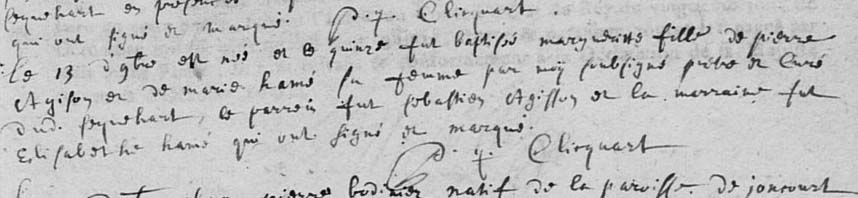 sequehart en presence
qui ont signé et marqué. P. q. Clicquart.
le 13 d 9bre est né et le quinze fut baptisée margueritte fille de pierre
Agison et de marie hamé sa femme par moy soubsigné prebtre et Curé
dud. sequehart, le parrein fut sebastien Agisson et la marraine fut
Elisabethe hamé qui ont signé et marqué.
P. q. Clicquart
pierre bodinier natif de la paroisse de joncourt